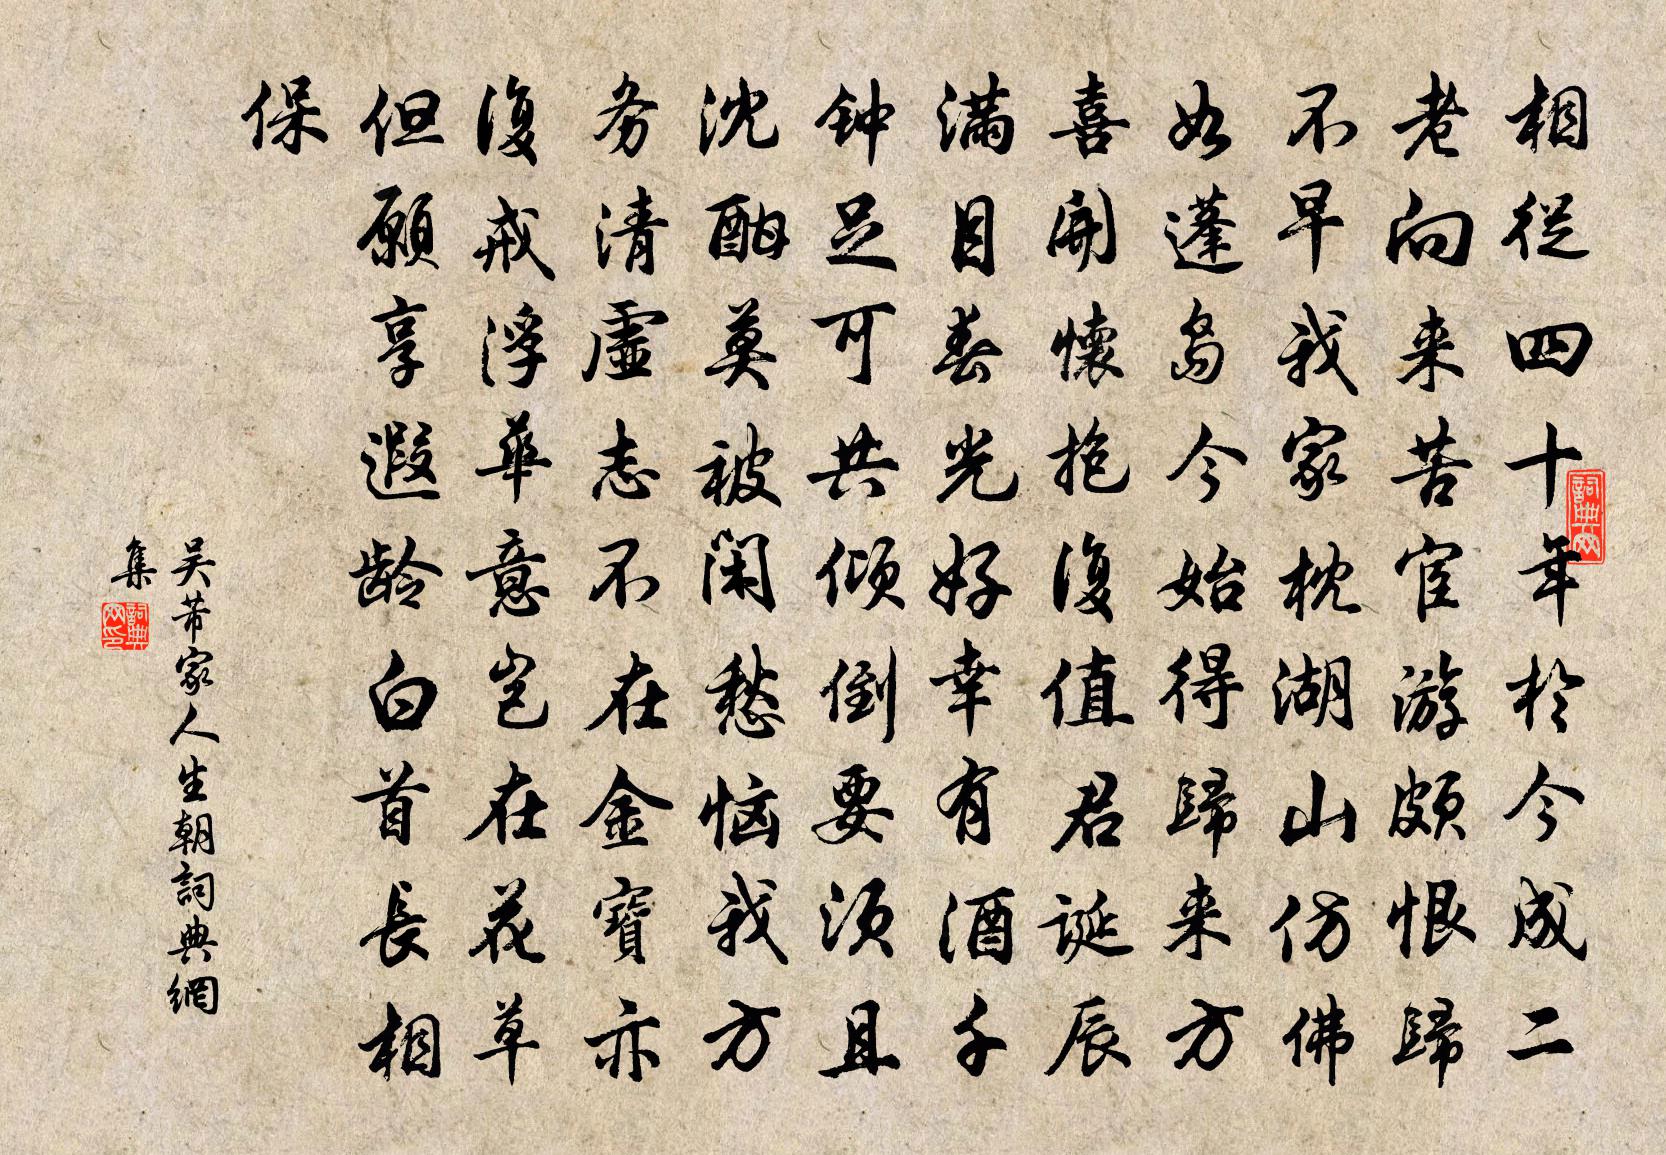 相從四十年於今成二
老向来苦宦游頗恨歸
不早我家枕湖山仿佛
如蓬岛今始得歸来方
喜開懷抱復值君诞辰
满目春光好幸有酒千
钟足可共倾倒要须且
沈酣莫被闲愁恼我方
务清虚志不在金寶亦
復戒浮華意岂在花草
但願享遐龄白首長相
保
吴芾家人生朝詞典網
集
詞典网
詞典网印